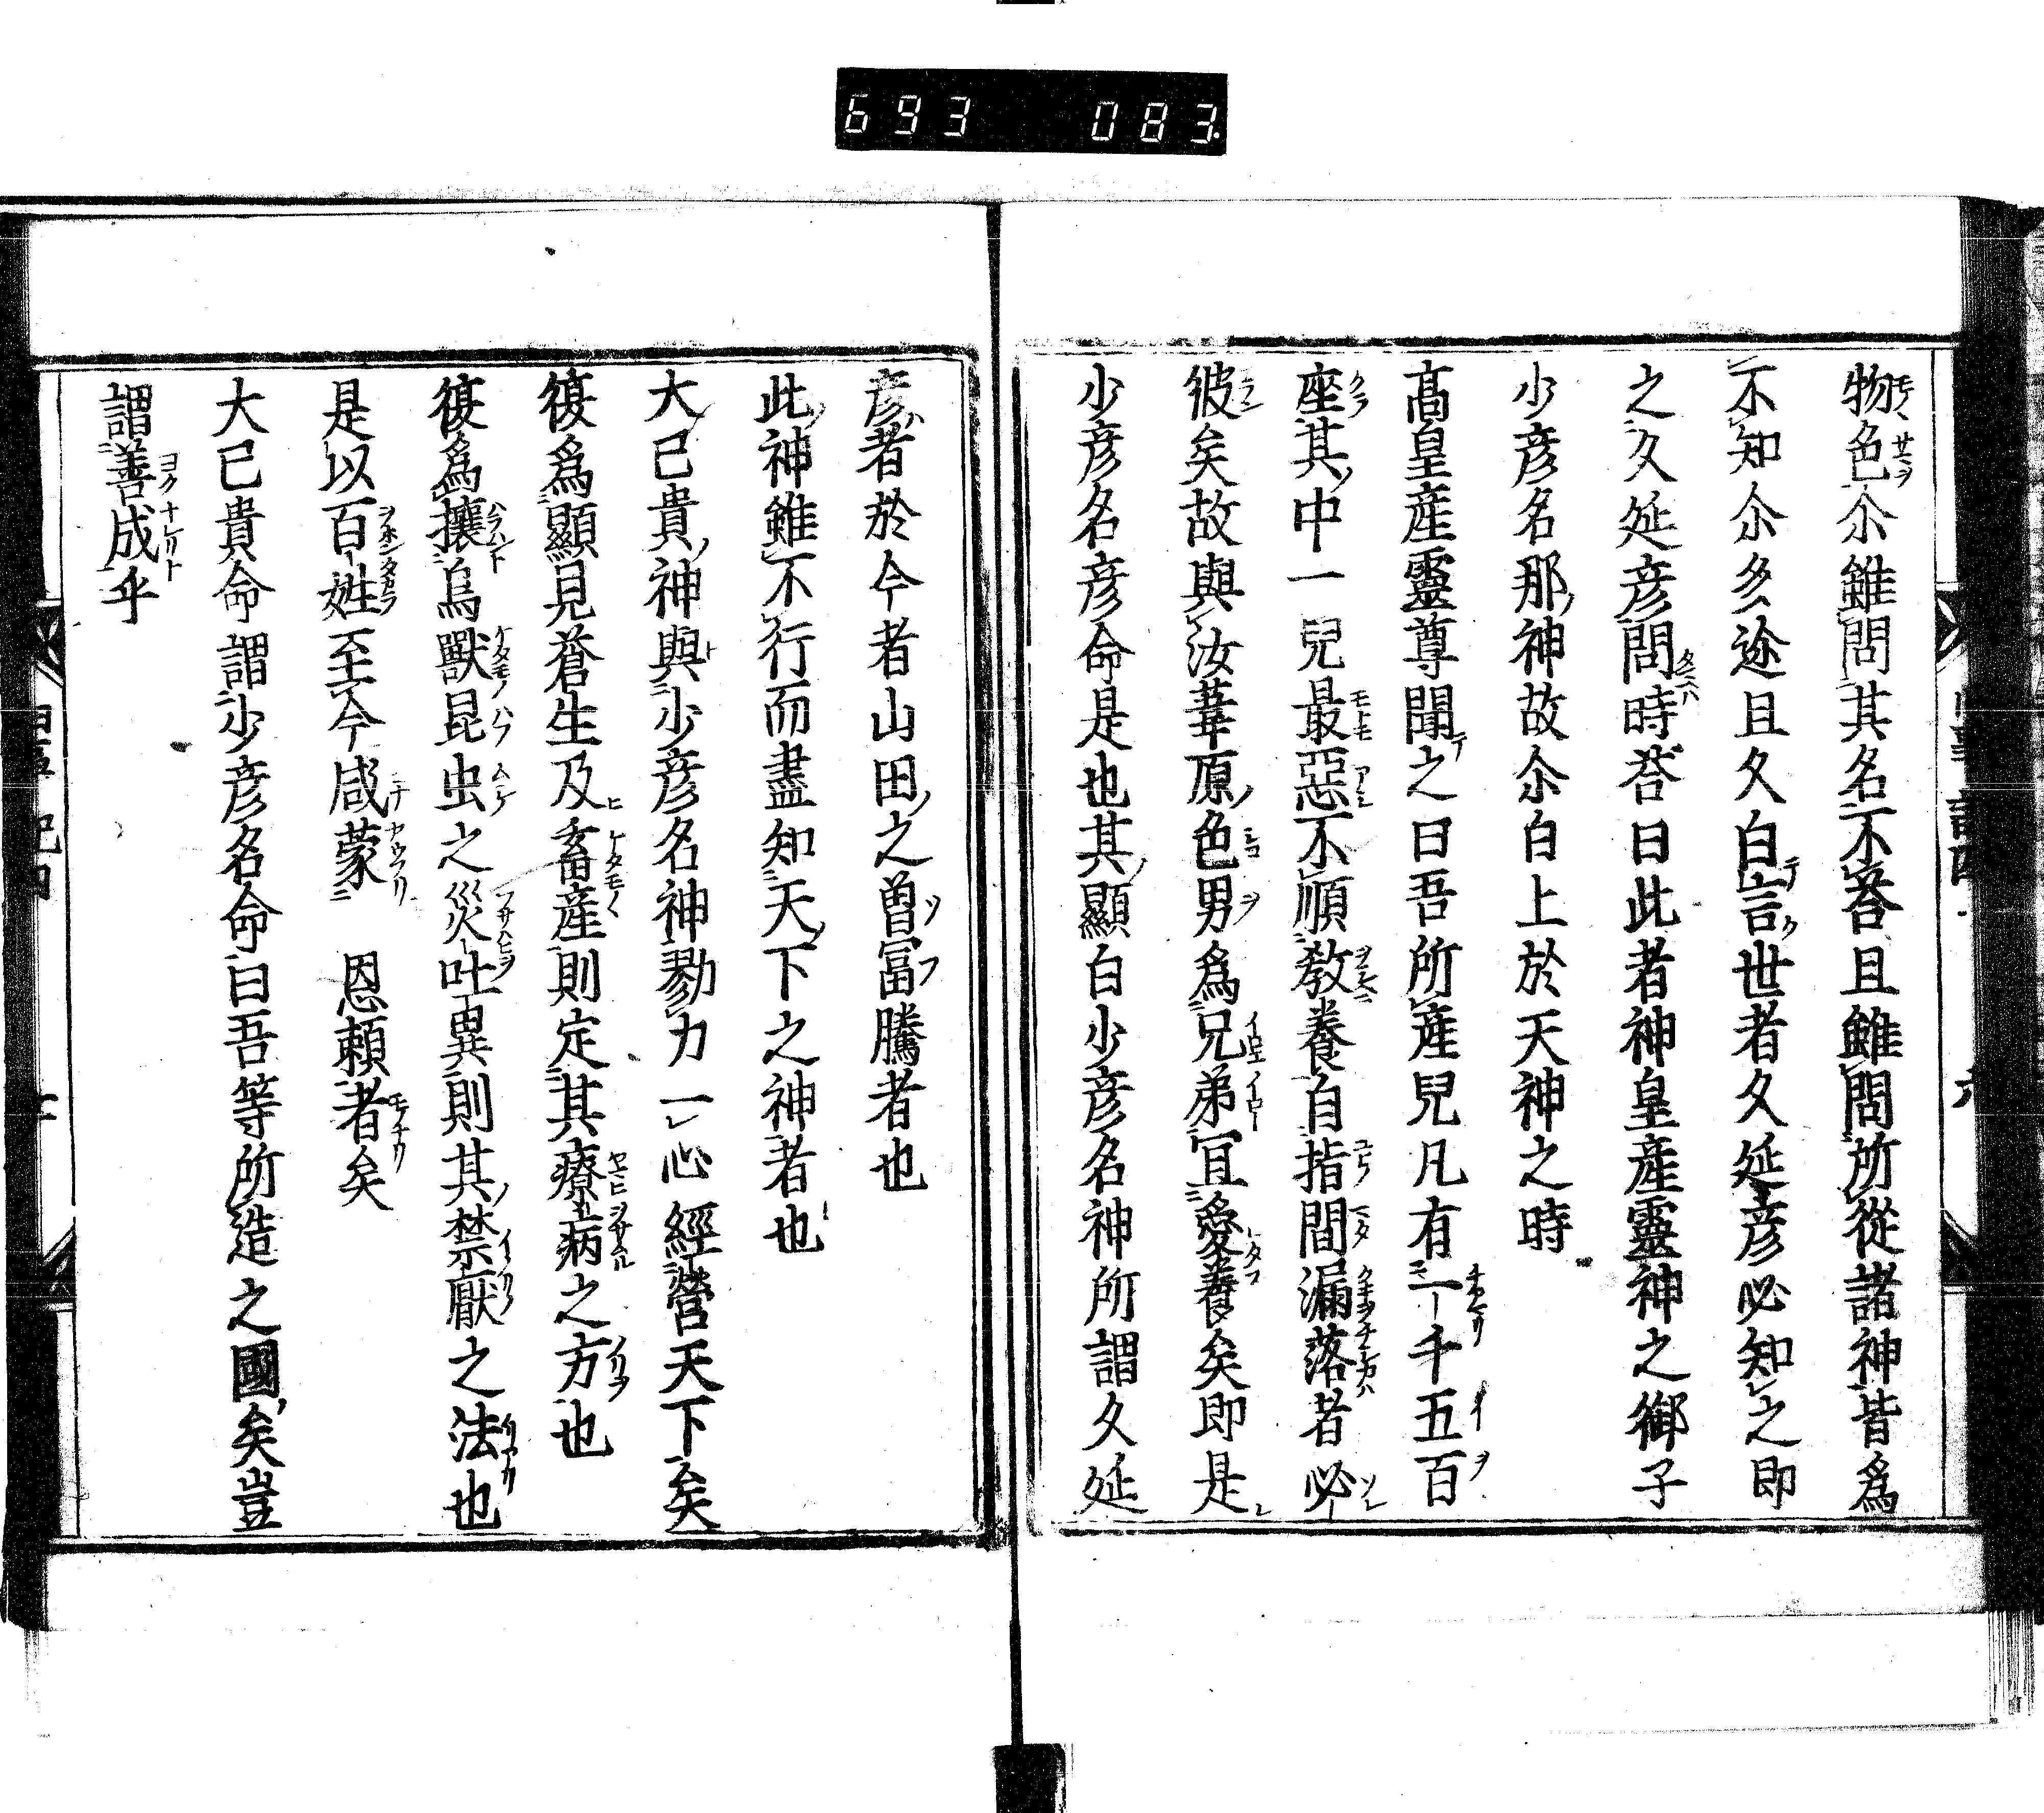 693 083
物色尒雖問其名不荅且雖問所從諸神皆爲
不知尒多迩且久白言世者久延彦必知之即
之久延彦問時荅曰此者神皇産靈神之御子
少彦名那神故尒白上於天神之時
髙皇産靈尊聞之曰吾所産兒凡有一千五百
座其中一兒最惡不順敎養自指間漏落者必
彼矣故與汝葦原色男爲兄弟宜愛養矣即是
少彦名彦命是也其顯白少彦名神所謂久延
彦者於今者山田之曽冨騰者也
此神雖不行而盡知天下之神者也
大己貴神與少彦名神勠力一心經營天下矣
復爲顯見蒼生及畜産則定其療病之方也
復爲攘鳥獸昆虫之災吐異則其禁厭之法也
是以百姓至今咸蒙　恩頼者矣
大己貴命謂少彦名命曰吾等所造之國矣豈
謂善成乎